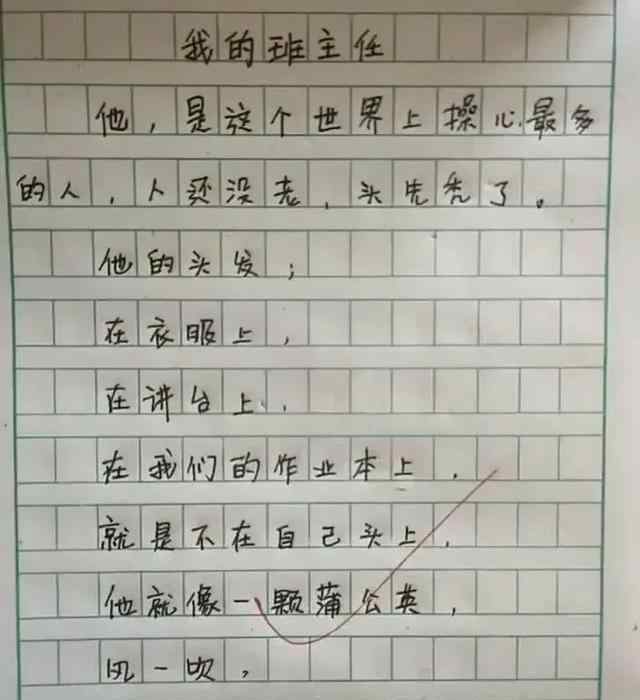 我的班主任
他，是这个世界上操心最多
的人，人还没老，头先秃了。
他的头发；
在衣服上，
在讲台上，
在我们的作业本上，
就是不在自己头上，
他就像一颗蒲公英，
风一吹，